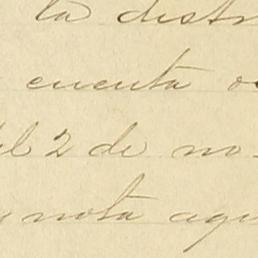 la distr
cuenta o
el 2 de no
nota aqu